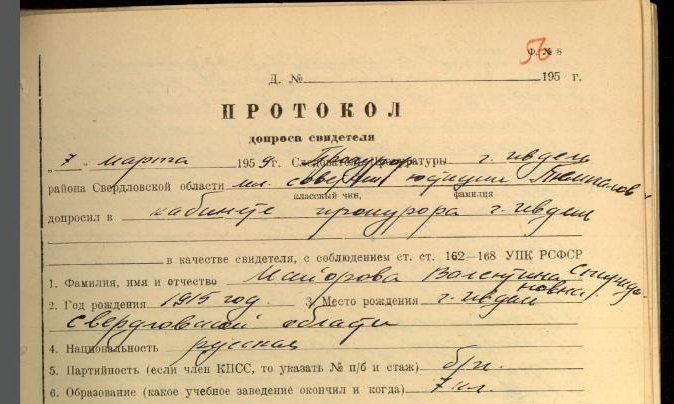 56
Ф. № 8
Д. № 195 г.
ПРОТОКОЛ
допроса свидетеля
"7" марта 1959 г. Следователь прокуратуры г. Ивдель
района Свердловской области мл. советник юстиции Темпалов
классный чин, фамилия
допросил в кабинете прокурора г. Ивдель
в качестве свидетеля, с соблюдением ст. ст. 162—168 УПК РСФСР
1. Фамилия, имя и отчество Майорова Валентина Спиридоновна
2. Год рождения 1915 год. 3. Место рождения г. Ивдель
Свердловской области
4. Национальность русская
5. Партийность (если член КПСС, то указать № п/б и стаж) б/п.
6. Образование (какое учебное заведение окончил и когда) 7 кл.